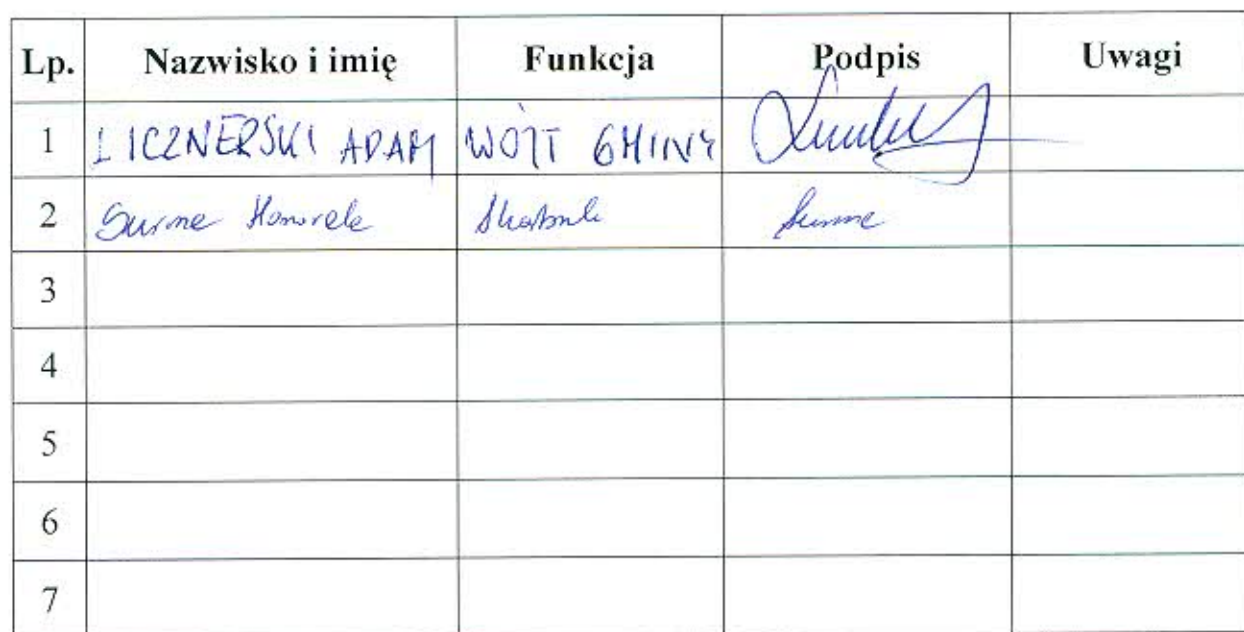 Lp. Nazwisko i imię Funkcja Podpis Uwagi
1 LICZNERSKI ADAM WÓJT GMINY
2 Surma Honorata Skarbnik
3
4
5
6
7